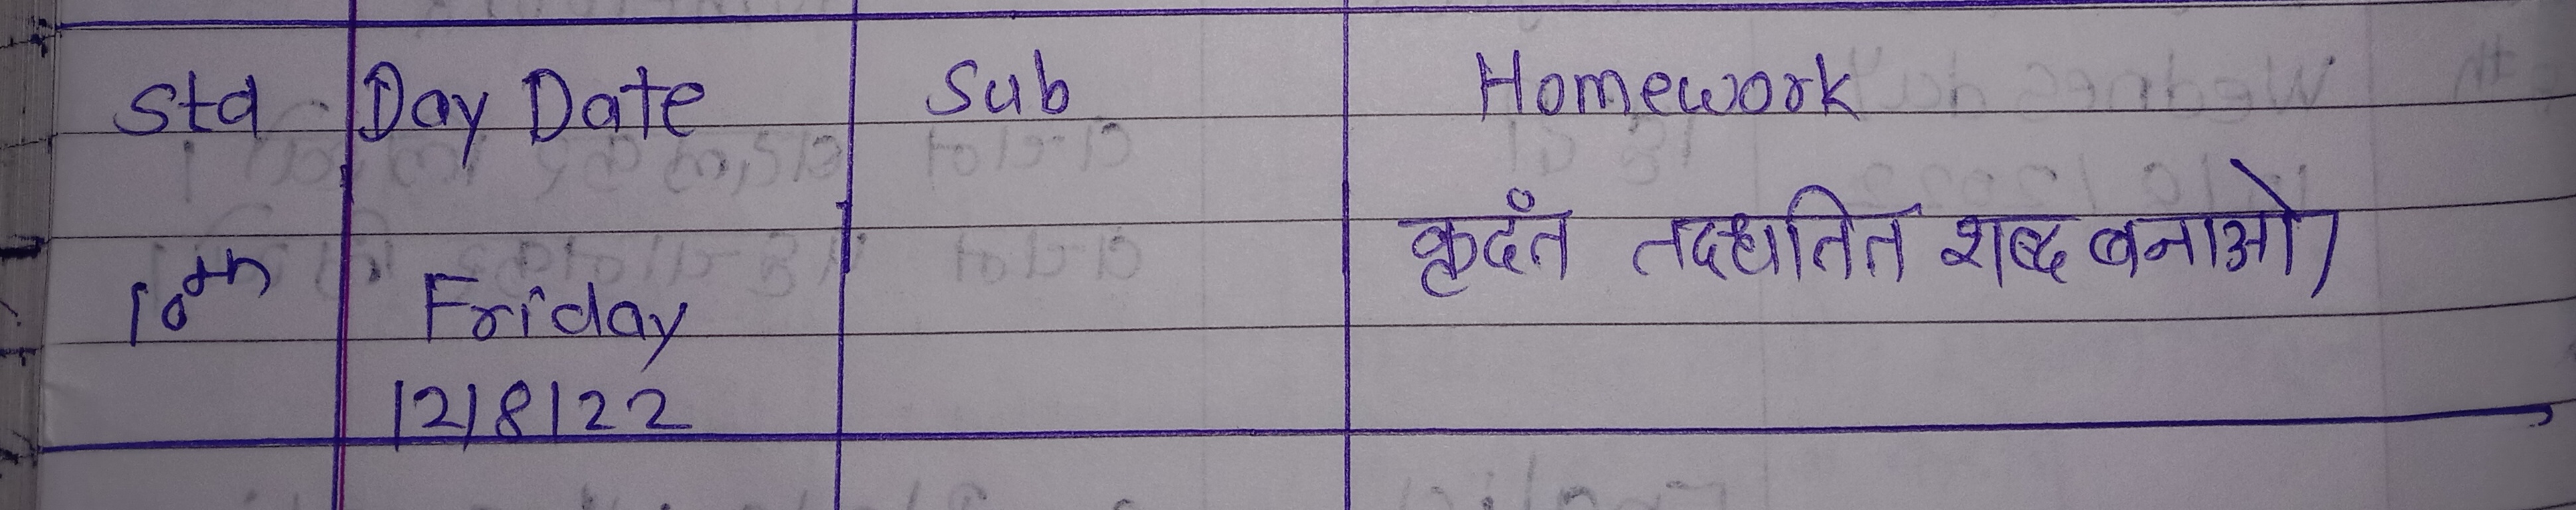 Std Day Date Sub Homework
10th Friday कृदंत तद्धतित शब्द बनाओ।
12/8/22